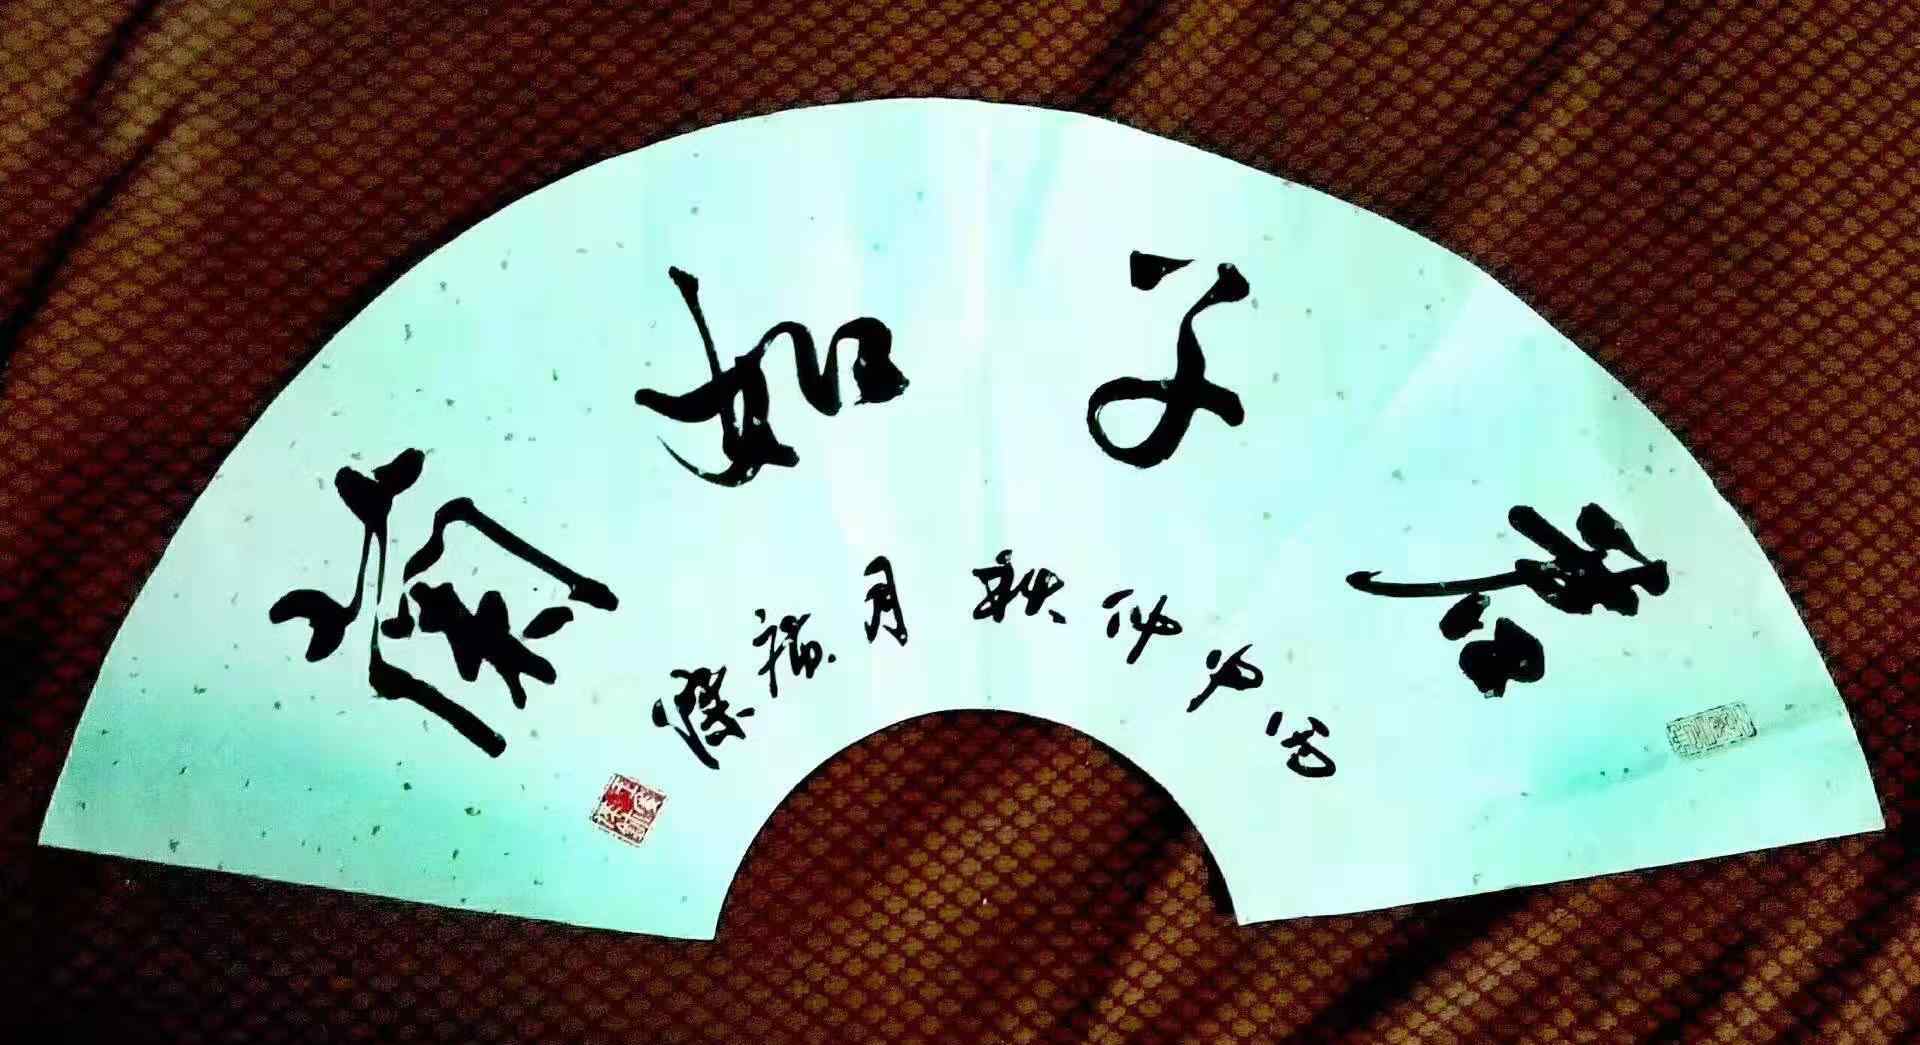 君子如蘭
丙申仲秋月福